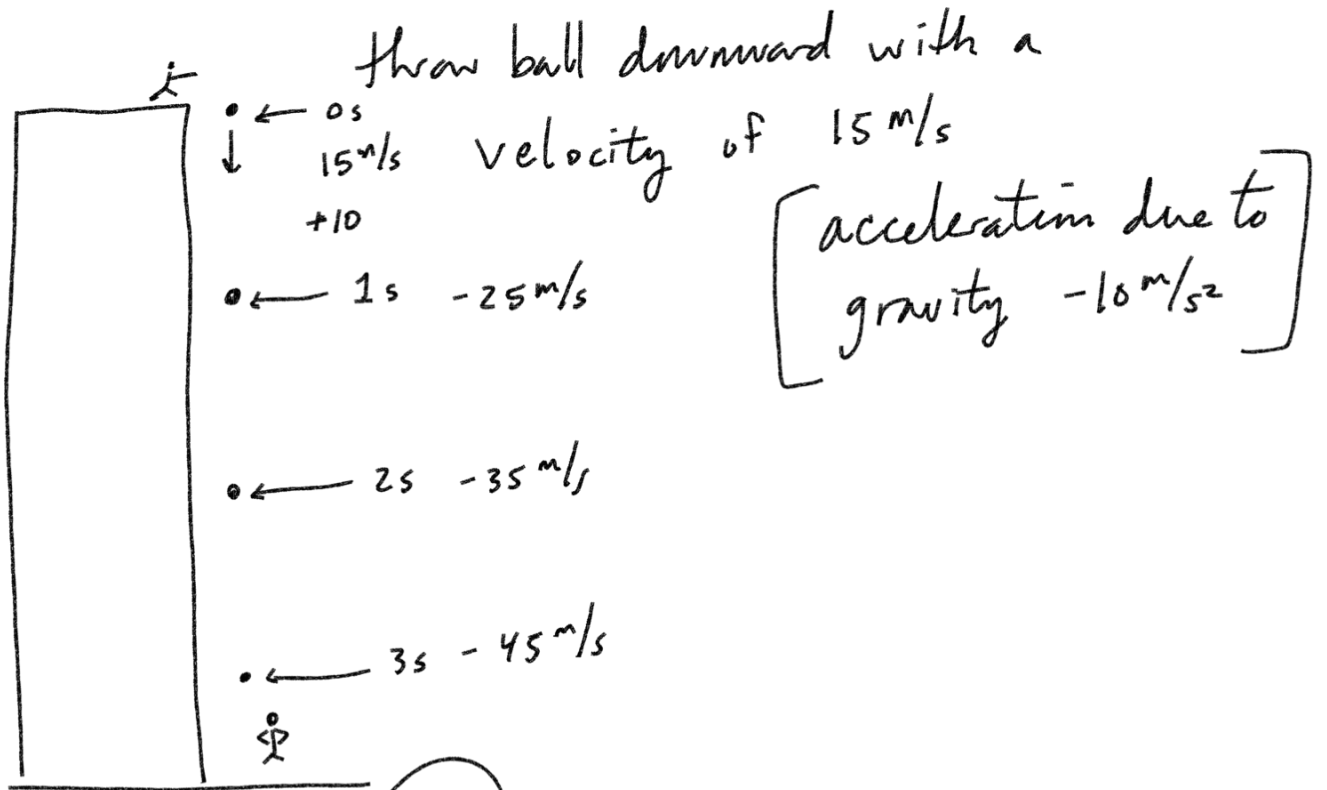 throw ball downward with a
0s
15 m/s velocity of 15 m/s
+10
[acceleration due to
gravity -10 m/s²]
1s -25 m/s
2s -35 m/s
3s - 45 m/s